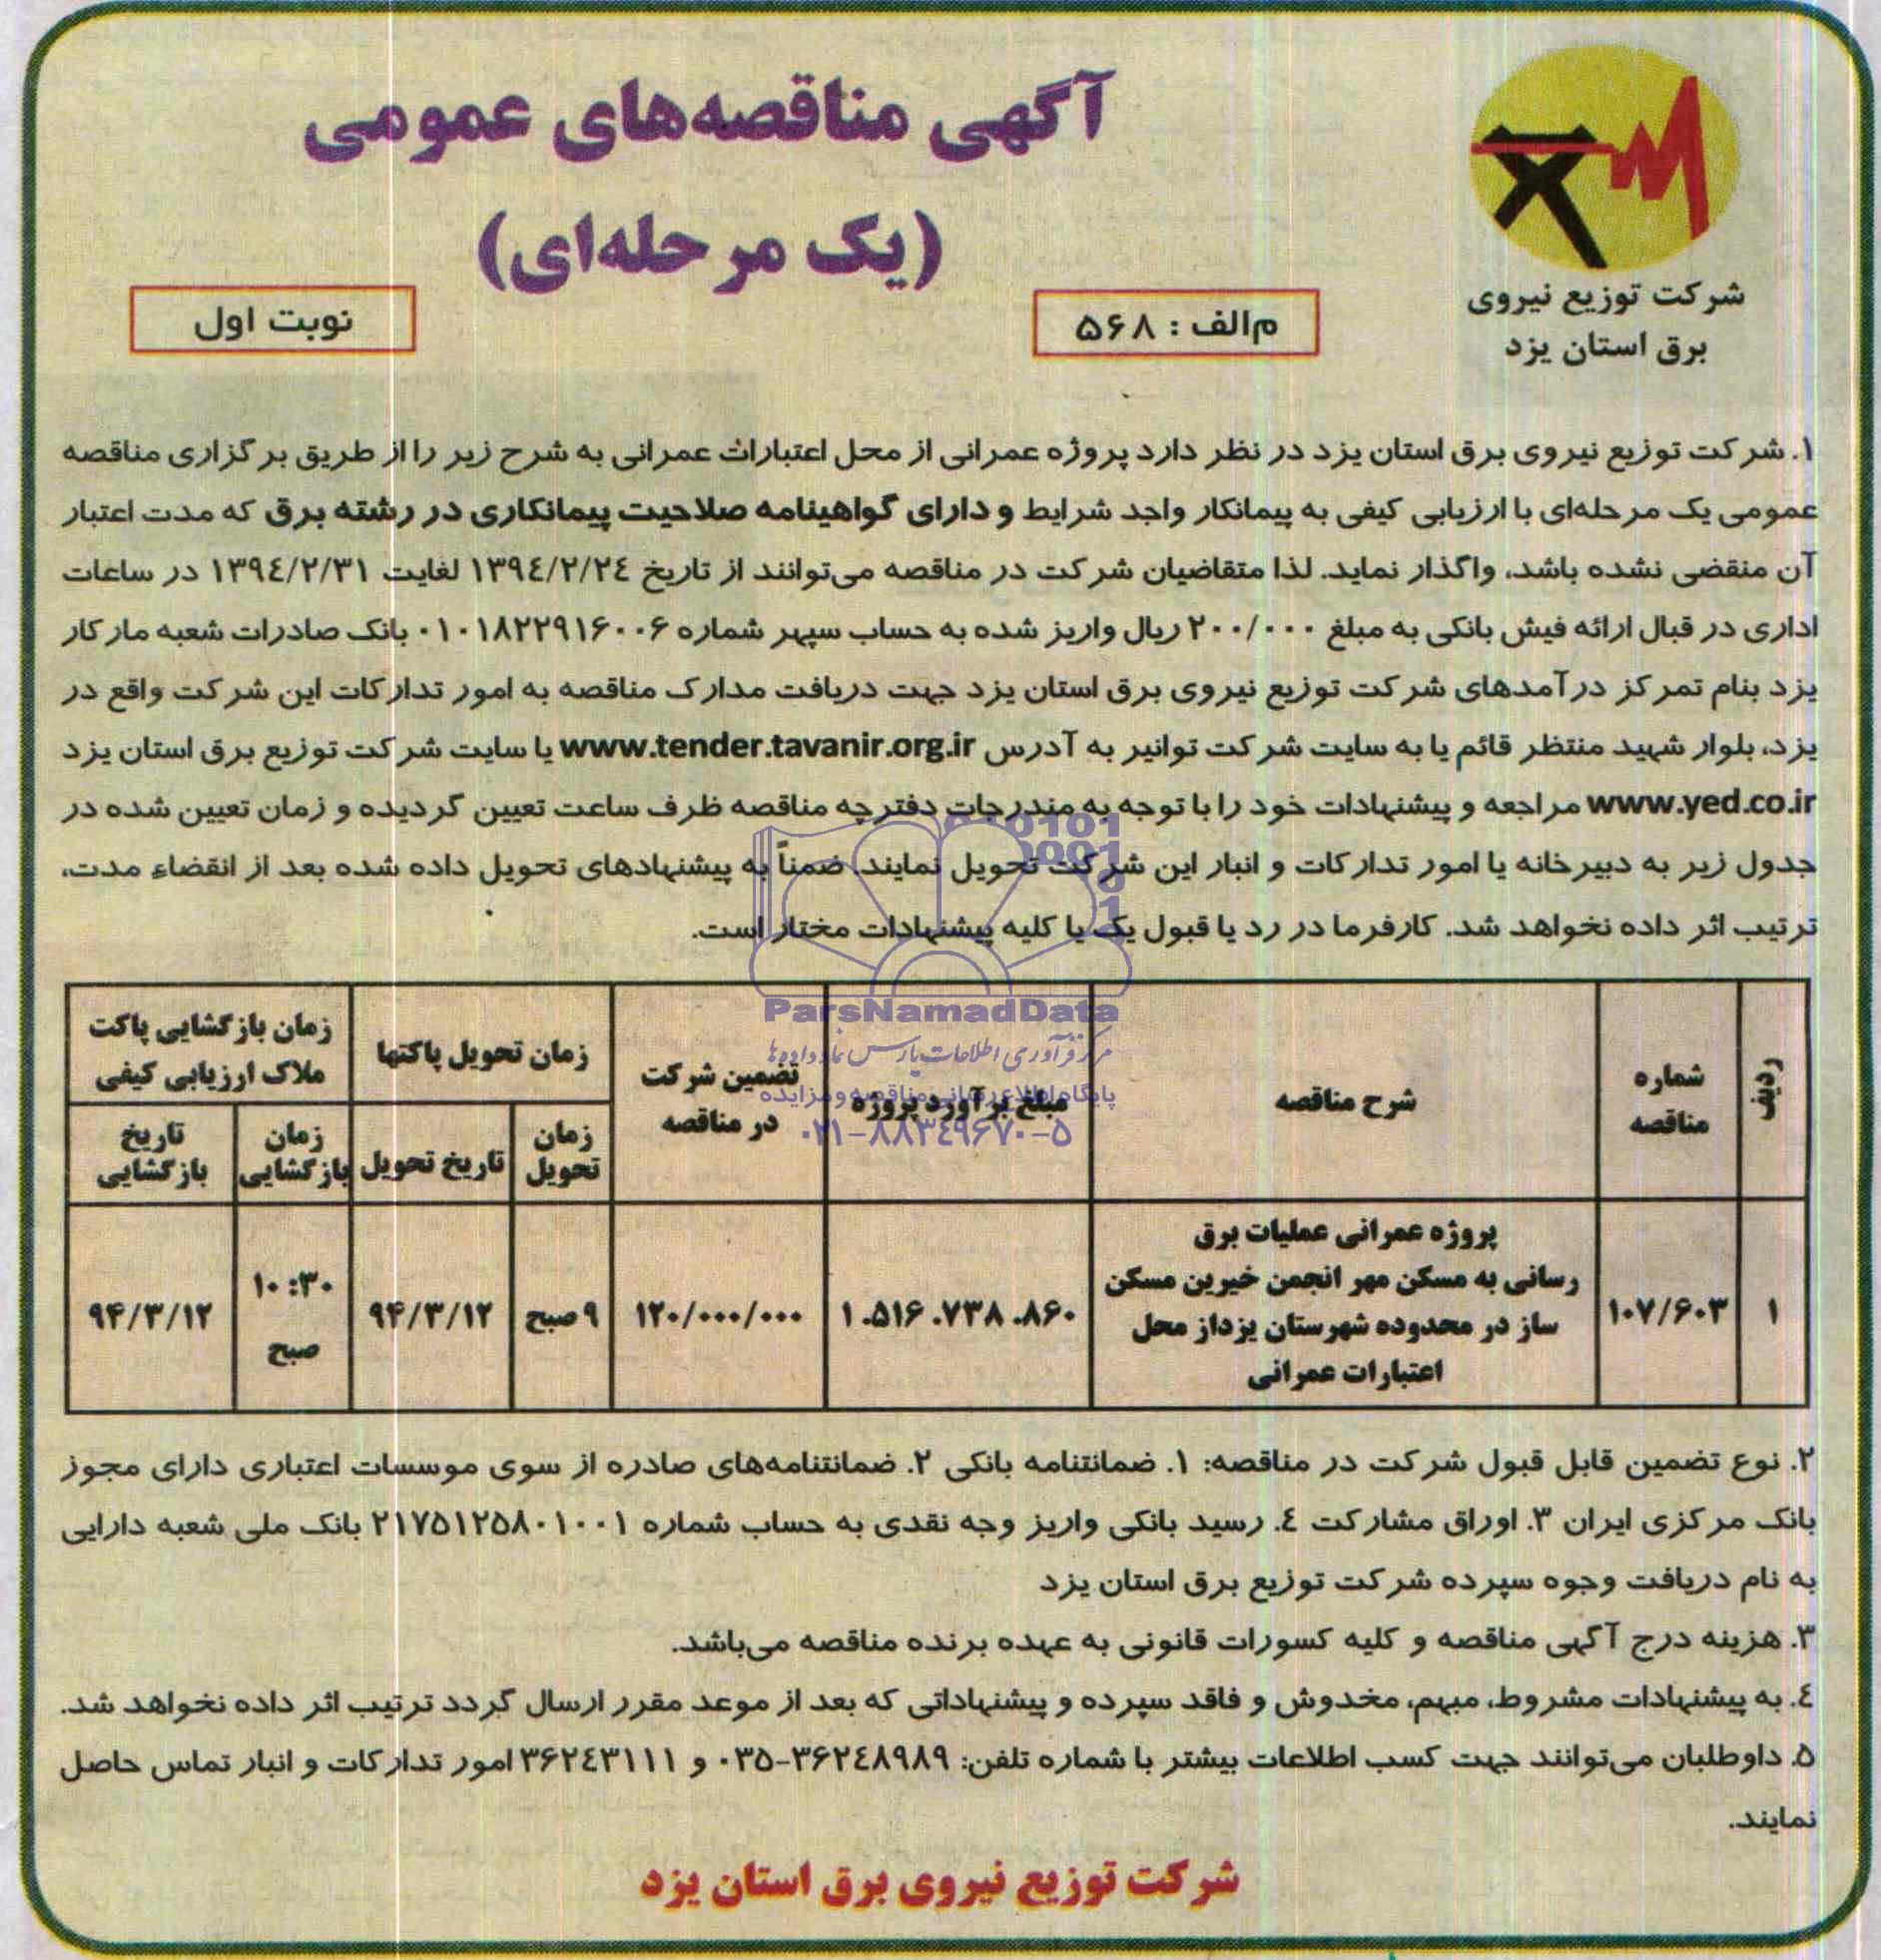 آگهی مناقصه‌های عمومی
(یک مرحله‌ای)
شرکت توزیع نیروی
برق استان یزد
م‌الف : ۵۶۸
نوبت اول
۱. شرکت توزیع نیروی برق استان یزد در نظر دارد پروژه عمرانی از محل اعتبارات عمرانی به شرح زیر را از طریق برگزاری مناقصه
عمومی یک مرحله‌ای با ارزیابی کیفی به پیمانکار واجد شرایط و دارای گواهینامه صلاحیت پیمانکاری در رشته برق که مدت اعتبار
آن منقضی نشده باشد، واگذار نماید. لذا متقاضیان شرکت در مناقصه می‌توانند از تاریخ ۱۳۹٤/۲/۲٤ لغایت ۱۳۹٤/۲/۳۱ در ساعات
اداری در قبال ارائه فیش بانکی به مبلغ ۲۰۰/۰۰۰ ریال واریز شده به حساب سپهر شماره ۰۱۰۱۸۲۲۹۱۶۰۰۶ بانک صادرات شعبه مارکار
یزد بنام تمرکز درآمدهای شرکت توزیع نیروی برق استان یزد جهت دریافت مدارک مناقصه به امور تدارکات این شرکت واقع در
یزد، بلوار شهید منتظر قائم یا به سایت شرکت توانیر به آدرس www.tender.tavanir.org.ir یا سایت شرکت توزیع برق استان یزد
www.yed.co.ir مراجعه و پیشنهادات خود را با توجه به مندرجات دفترچه مناقصه ظرف ساعت تعیین گردیده و زمان تعیین شده در
جدول زیر به دبیرخانه یا امور تدارکات و انبار این شرکت تحویل نمایند. ضمناً به پیشنهادهای تحویل داده شده بعد از انقضاء مدت،
ترتیب اثر داده نخواهد شد. کارفرما در رد یا قبول یک یا کلیه پیشنهادات مختار است.
ParsNamadData
مرکز فرآوری اطلاعات پارس نماد داده‌ها
پایگاه اطلاع رسانی مناقصه و مزایده
۰۲۱-۸۸۳٤۹۶۷۰-۵
ردیف
شماره
مناقصه
شرح مناقصه
مبلغ برآورد پروژه
تضمین شرکت
در مناقصه
زمان تحویل پاکتها
زمان بازگشایی پاکت
ملاک ارزیابی کیفی
زمان
تحویل
تاریخ تحویل
زمان
بازگشایی
تاریخ
بازگشایی
۱
۱۰۷/۶۰۳
پروژه عمرانی عملیات برق
رسانی به مسکن مهر انجمن خیرین مسکن
ساز در محدوده شهرستان یزداز محل
اعتبارات عمرانی
۱.۵۱۶.۷۳۸.۸۶۰
۱۲۰/۰۰۰/۰۰۰
۹ صبح
۹۴/۳/۱۲
۱۰:۳۰
صبح
۹۴/۳/۱۲
۲. نوع تضمین قابل قبول شرکت در مناقصه: ۱. ضمانتنامه بانکی ۲. ضمانتنامه‌های صادره از سوی موسسات اعتباری دارای مجوز
بانک مرکزی ایران ۳. اوراق مشارکت ٤. رسید بانکی واریز وجه نقدی به حساب شماره ۲۱۷۵۱۲۵۸۰۱۰۰۱ بانک ملی شعبه دارایی
به نام دریافت وجوه سپرده شرکت توزیع برق استان یزد
۳. هزینه درج آگهی مناقصه و کلیه کسورات قانونی به عهده برنده مناقصه می‌باشد.
٤. به پیشنهادات مشروط، مبهم، مخدوش و فاقد سپرده و پیشنهاداتی که بعد از موعد مقرر ارسال گردد ترتیب اثر داده نخواهد شد.
۵. داوطلبان می‌توانند جهت کسب اطلاعات بیشتر با شماره تلفن: ۳۶۲٤۸۹۸۹-۰۳۵ و ۳۶۲٤۳۱۱۱ امور تدارکات و انبار تماس حاصل
نمایند.
شرکت توزیع نیروی برق استان یزد